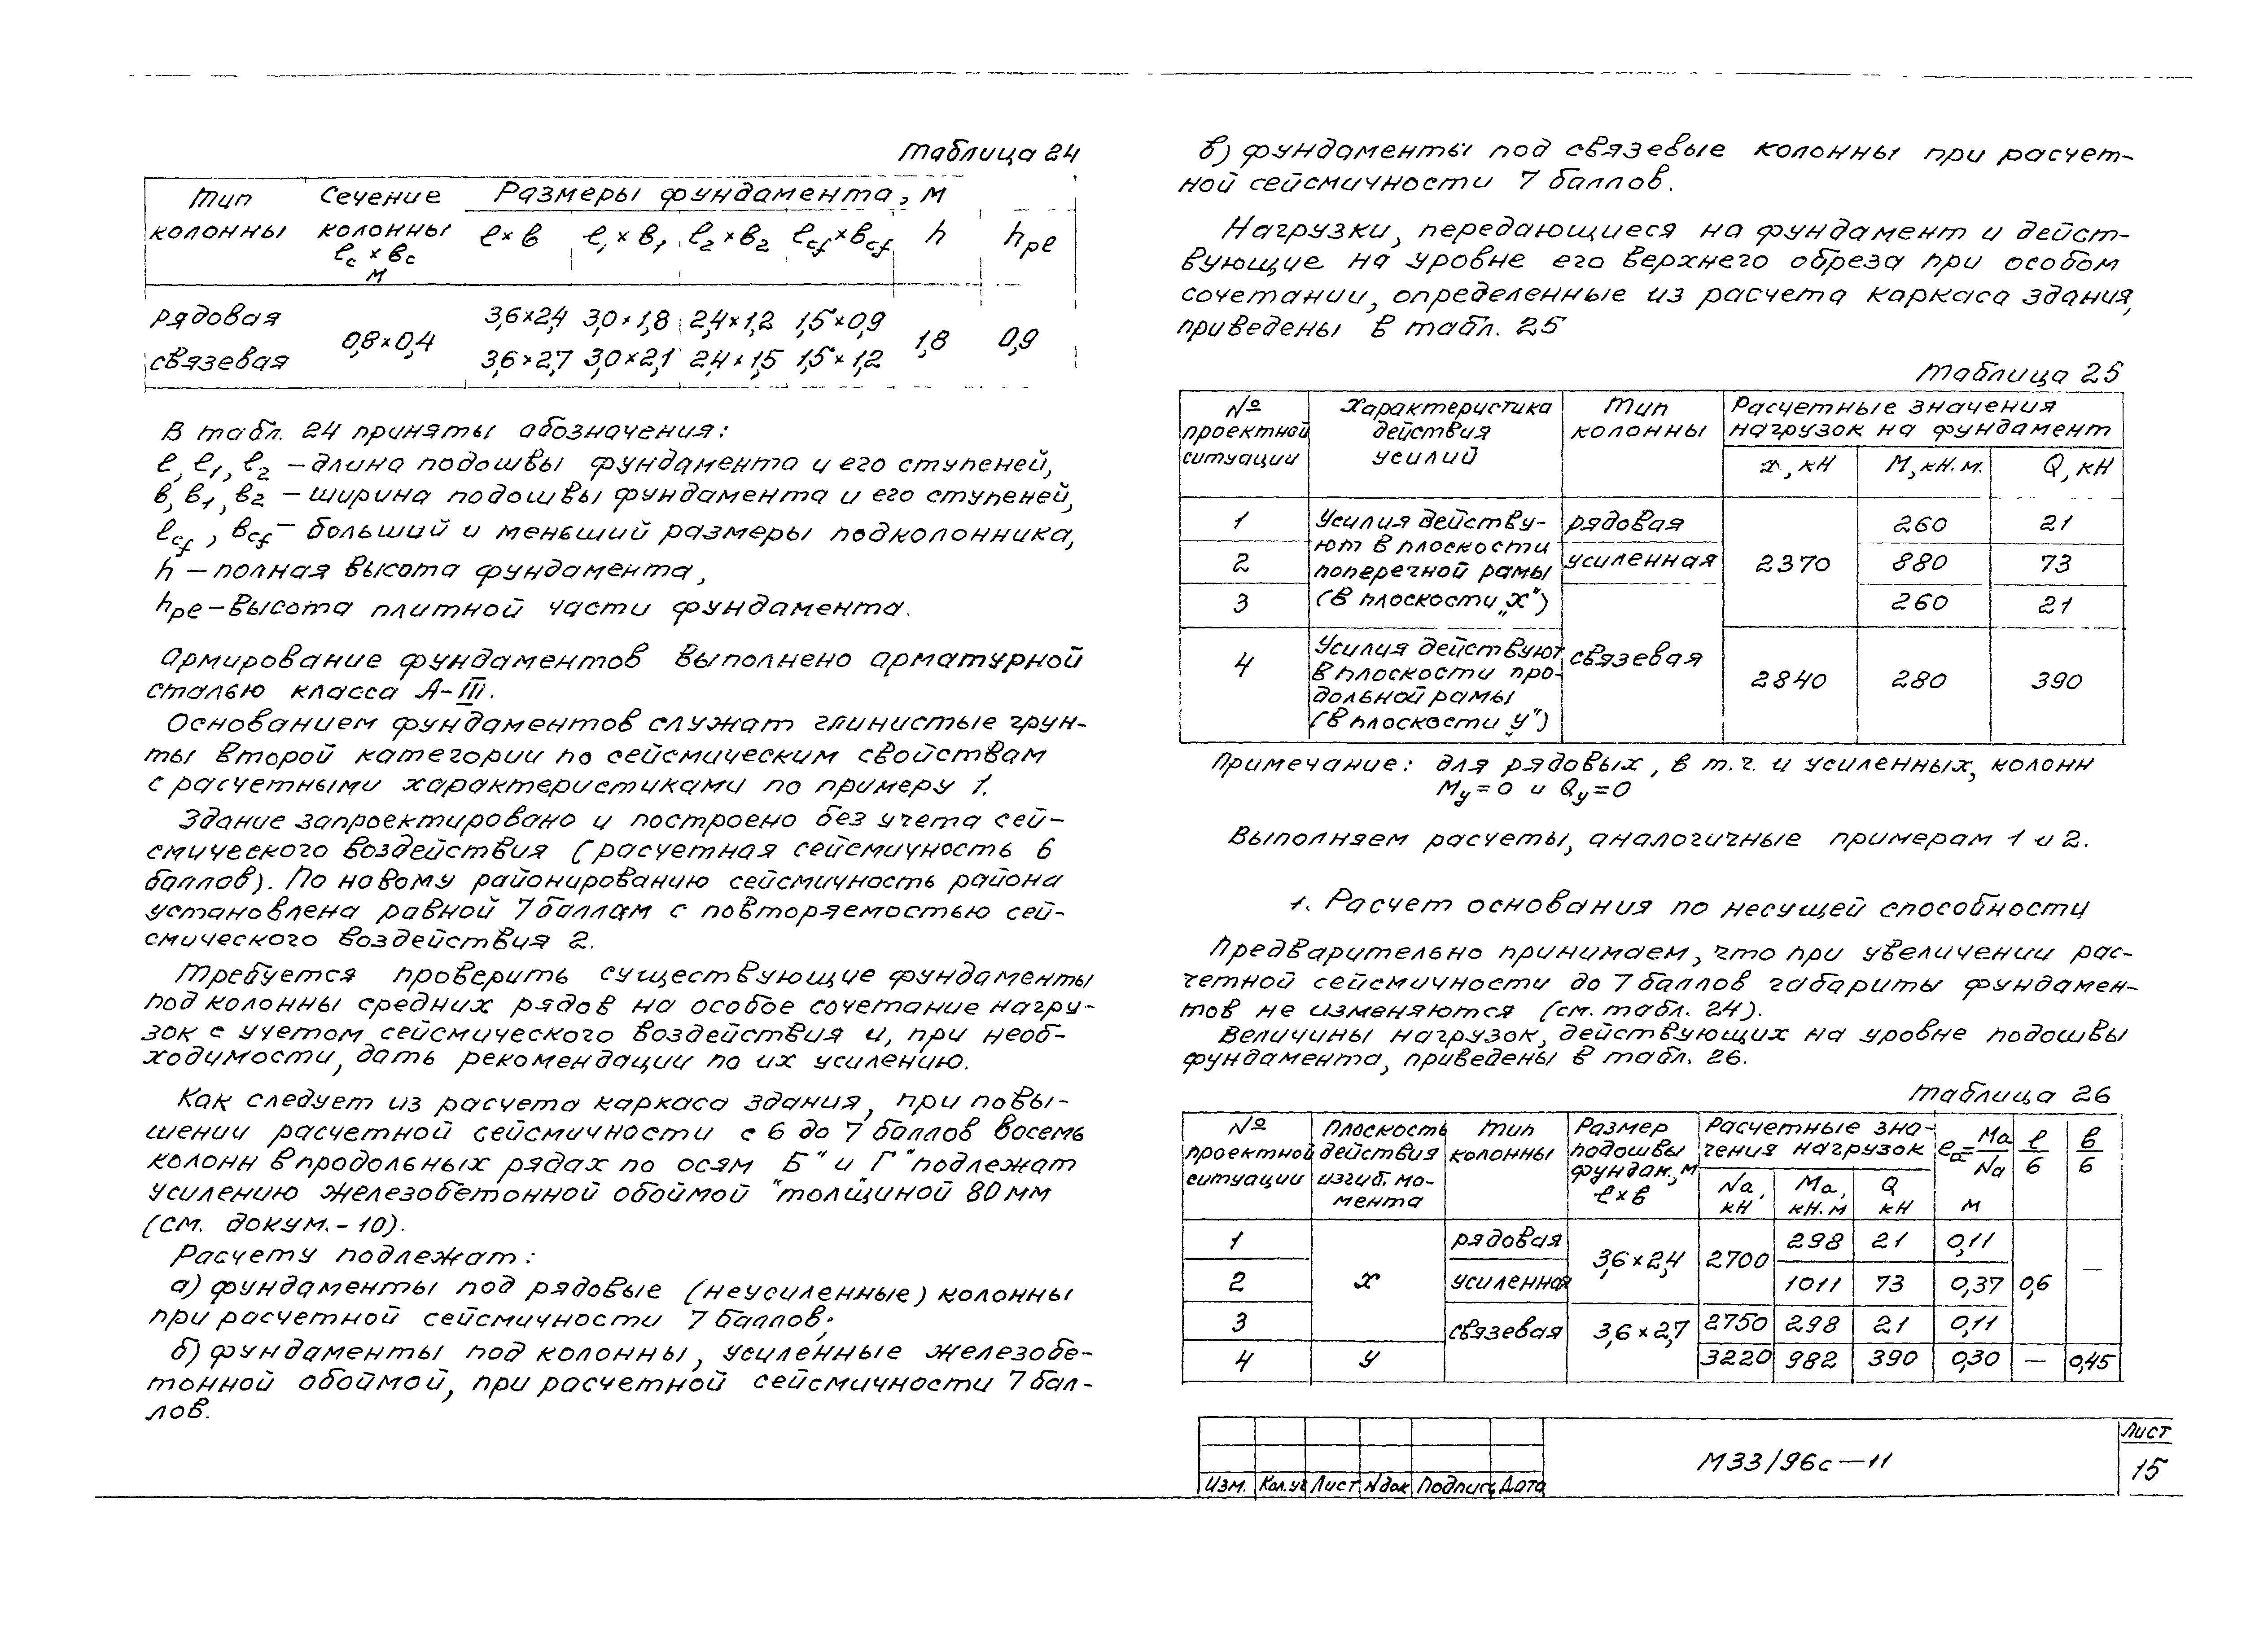 Таблица 24
Тип Сечение Размеры фундамента, м
колонны колонны ℓ×в ℓ₁×в₁ ℓ₂×в₂ ℓcf×вcf h hpe
ℓс×вс
м
рядовая 3,6×2,4 3,0×1,8 2,4×1,2 1,5×0,9
0,8×0,4 1,8 0,9
связевая 3,6×2,7 3,0×2,1 2,4×1,5 1,5×1,2
В табл. 24 приняты обозначения:
ℓ, ℓ₁, ℓ₂ – длина подошвы фундамента и его ступеней,
в, в₁, в₂ – ширина подошвы фундамента и его ступеней,
ℓcf, вcf – больший и меньший размеры подколонника,
h – полная высота фундамента,
hpe – высота плитной части фундамента.
Армирование фундаментов выполнено арматурной
сталью класса А-III.
Основанием фундаментов служат глинистые грун-
ты второй категории по сейсмическим свойствам
с расчетными характеристиками по примеру 1.
Здание запроектировано и построено без учета сей-
смического воздействия (расчетная сейсмичность 6
баллов). По новому районированию сейсмичность района
установлена равной 7 баллам с повторяемостью сей-
смического воздействия 2.
Требуется проверить существующие фундаменты
под колонны средних рядов на особое сочетание нагру-
зок с учетом сейсмического воздействия и, при необ-
ходимости, дать рекомендации по их усилению.
Как следует из расчета каркаса здания, при повы-
шении расчетной сейсмичности с 6 до 7 баллов восемь
колонн в продольных рядах по осям „Б" и „Г" подлежат
усилению железобетонной обоймой толщиной 80 мм
(см. докум.-10).
Расчету подлежат:
а) фундаменты под рядовые (неусиленные) колонны
при расчетной сейсмичности 7 баллов;
б) фундаменты под колонны, усиленные железобе-
тонной обоймой, при расчетной сейсмичности 7 бал-
лов.
в) фундаменты под связевые колонны при расчет-
ной сейсмичности 7 баллов.
Нагрузки, передающиеся на фундамент и дейст-
вующие на уровне его верхнего обреза при особом
сочетании, определенные из расчета каркаса здания,
приведены в табл. 25
Таблица 25
№ Характеристика Тип Расчетные значения
проектной действия колонны нагрузок на фундамент
ситуации усилий N, кН М, кН.м. Q, кН
1 Усилия действу- рядовая 260 21
ют в плоскости
2 поперечной рамы усиленная 2370 880 73
3 (в плоскости „х") 260 21
4 Усилия действуют связевая 2840 280 390
в плоскости про-
дольной рамы
(в плоскости „у")
Примечание: для рядовых, в т.ч. и усиленных, колонн
Му=0 и Qу=0
Выполняем расчеты, аналогичные примерам 1 и 2.
1. Расчет основания по несущей способности
Предварительно принимаем, что при увеличении рас-
четной сейсмичности до 7 баллов габариты фундамен-
тов не изменяются (см. табл. 24).
Величины нагрузок, действующих на уровне подошвы
фундамента, приведены в табл. 26.
Таблица 26
№ Плоскость Тип Размер Расчетные зна- eа=Ма/Nа ℓ/6 в/6
проектной действия колонны подошвы чения нагрузок
ситуации изгиб. мо- фундам., м Nа, Ма, Q
мента ℓ×в кН кН.м кН м
1 рядовая 298 21 0,11
3,6×2,4 2700 —
2 х усиленная 1011 73 0,37 0,6
3 связевая 3,6×2,7 2750 298 21 0,11
4 у 3220 982 390 0,30 — 0,45
М33/96с—11
Лист
15
Изм. Кол.уч Лист Nдок Подпись Дата